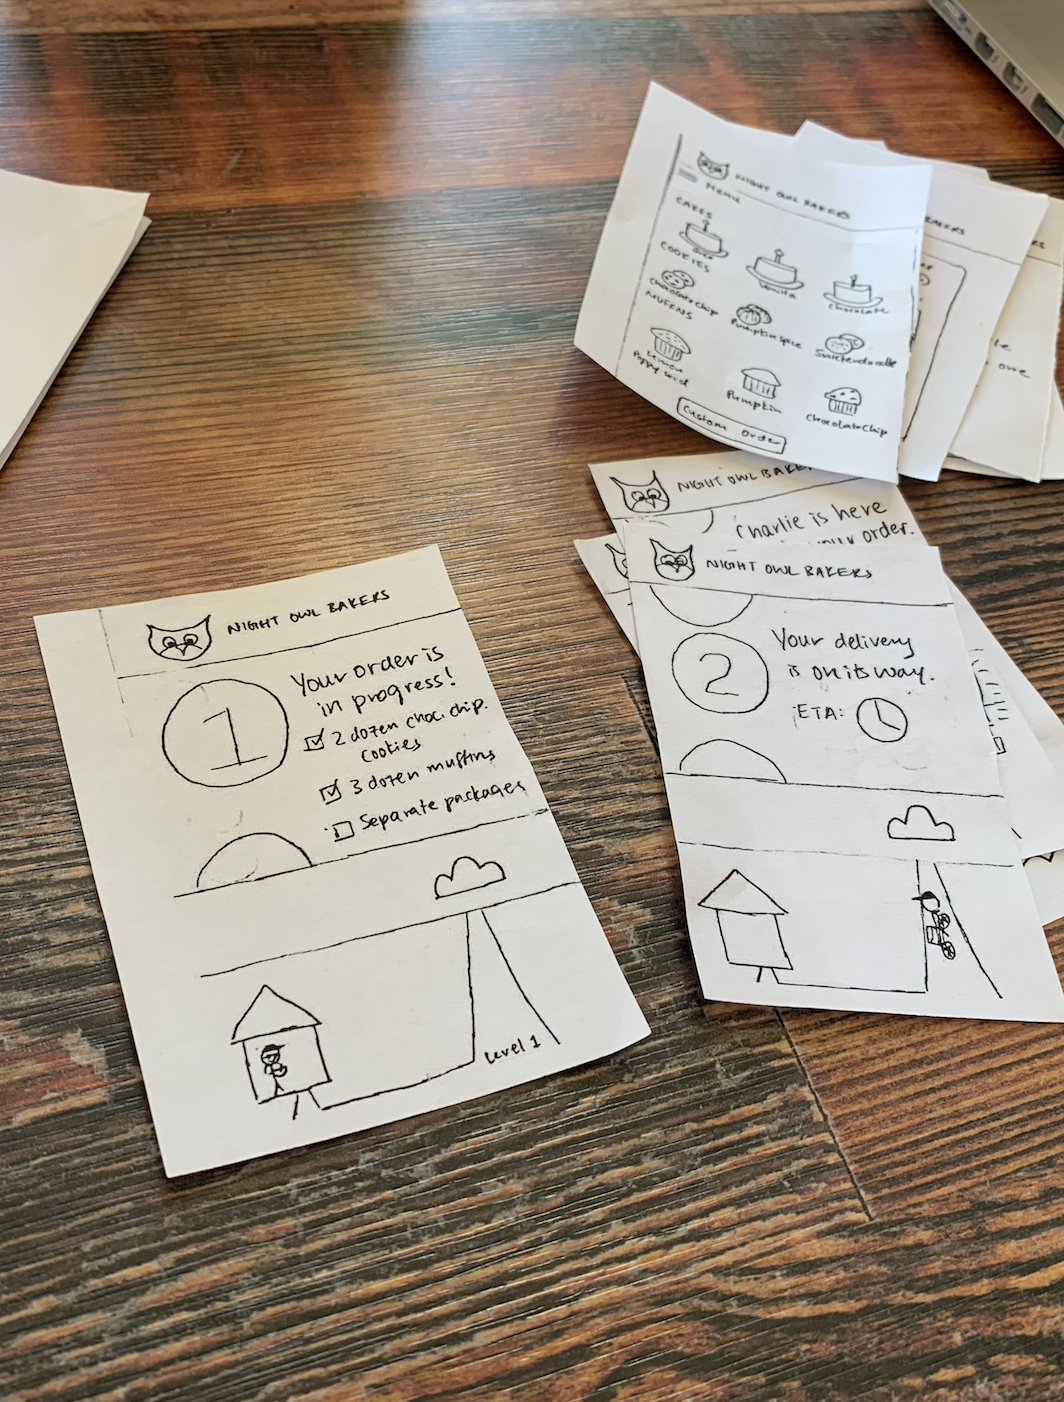 NIGHT OWL BAKERS
Menu
CAKES
Vanilla
Chocolate
COOKIES
Chocolate Chip
Pumpkin spice
MUFFINS
Lemon
Poppy seed
Pumpkin
Chocolate Chip
Custom Order
BAKERS
NIGHT OWL BAKE
Charlie is here
your order.
NIGHT OWL BAKERS
2
Your delivery
is on its way.
ETA:
NIGHT OWL BAKERS
1
Your order is
in progress!
2 dozen choc. chip.
cookies
3 dozen muffins
Separate packages
Level 1